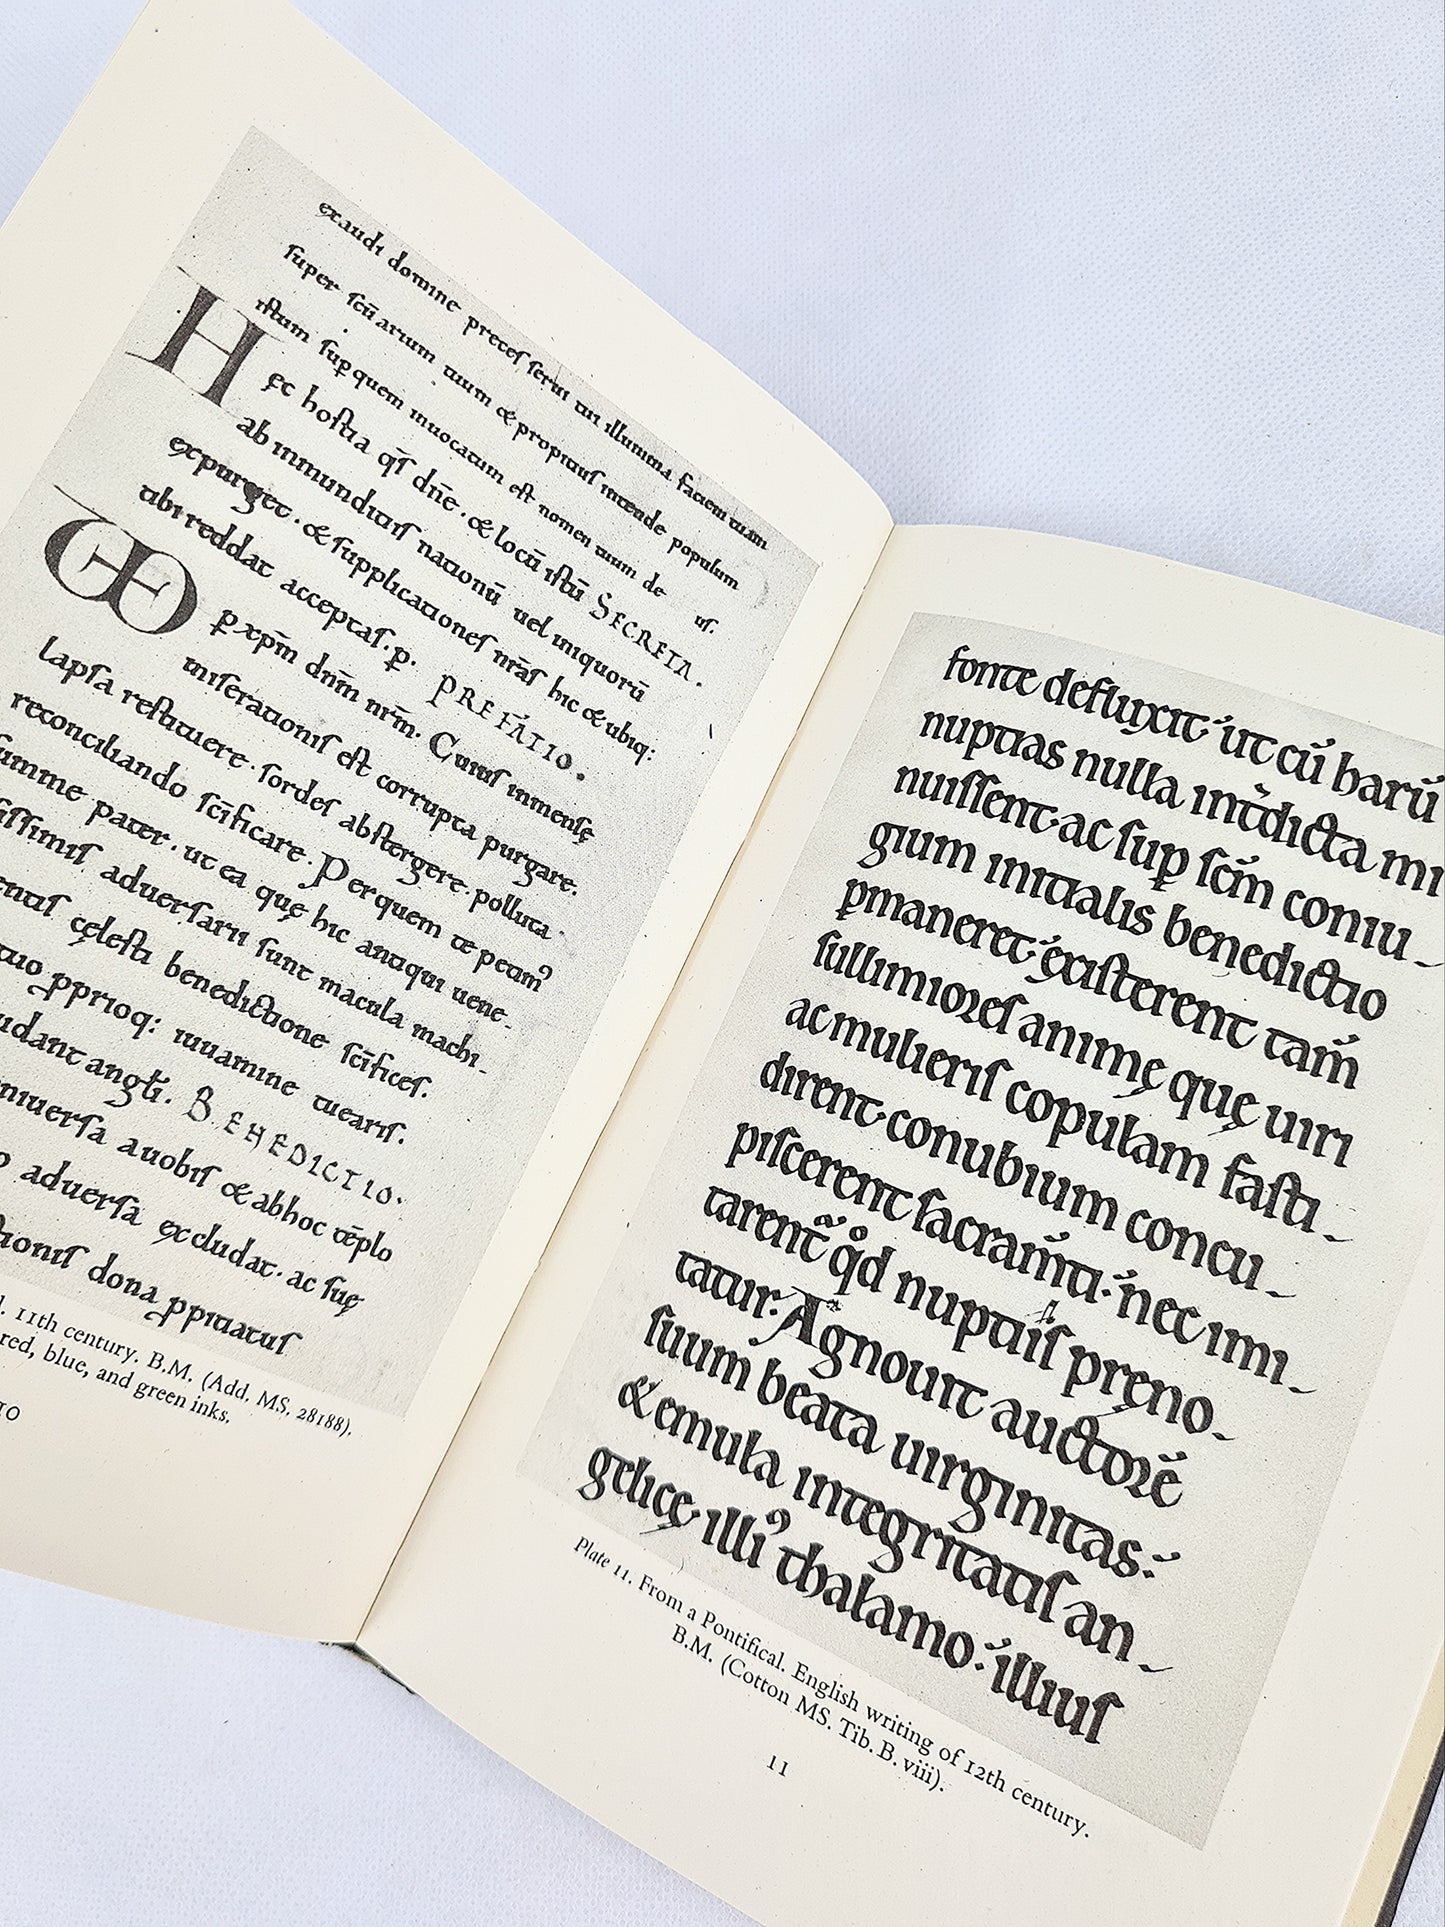 exaudi domine preces serui tui illumina faciem tuam
super scūarium tuum & propitius intende populum
istum sup quem inuocatum est nomen tuum de us.
Hęc hostia qs̄ dn̄e. & locū istū SECRETA.
ab inmunditiis nationū uel iniquorū
expurget. & supplicationes nr̄as hic & ubiq:
tibi reddat acceptas. p. PREFATIO.
p xp̄m dn̄m nr̄m. Cuius inmensę
miserationis est corrupta purgare.
lapsa restituere. sordes abstergere. polluta
reconciliando sc̄ificare. Per quem te petim᾽
summe pater. ut ea quę hic antiqui uene-
issimis aduersarii sunt macula machi-
entis cęlesti benedictione sc̄ifices.
tuo pprioq: iuuamine tuearis.
udant angłi. BENEDICTIO.
niuersa auobis & abhoc tēplo
o aduersa excludat. ac suę
tionis dona ppitiatus
l. 11th century. B.M. (Add. MS. 28188).
red, blue, and green inks.
10
fonte defluxit ut cū harū
nuptias nulla int̄dicta mi
nuissent. ac sup sc̄m coniu-
gium initialis benedictio
pmaneret. existerent tam̄
sullimiores animę quę uiri
ac mulieris copulam fasti-
dirent. conubium concu-
piscerent sacram̄ti. nec imi-
tarent qd nuptiis pręno-
tatur. Agnouit auctorē
suum beata uirginitas.
& emula integritatis an-
gelicę. illi᾽ thalamo. illius
Plate 11. From a Pontifical. English writing of 12th century.
B.M. (Cotton MS. Tib. B. viii).
11